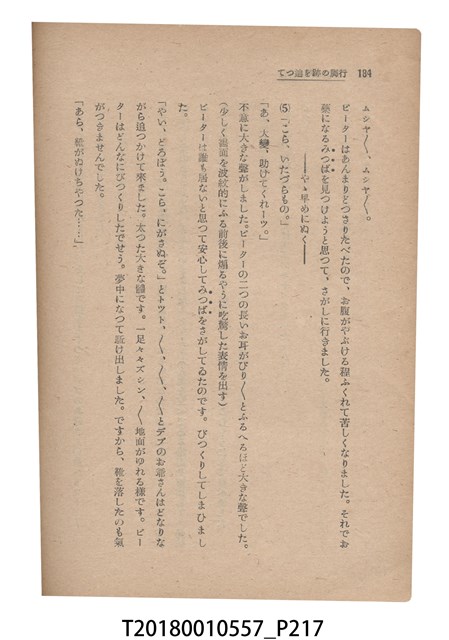 184 行脚の跡を追つて
ムシヤ〱、ムシヤ〱。
ピーターはあんまりどつさりたべたので、お腹がやぶける程ふくれて苦しくなりました。それでお
藥になるみつばを見つけようと思つて、さがしに行きました。
――やゝ早めにぬく――
⑸「こら、いたづらもの。」
「あ、大變、助けてくれーッ。」
不意に大きな聲がしました。ピーターの二つの長いお耳がぴり〱とふるへるほど大きな聲でした。
(少しく畫面を波紋的にふる前後に煽るやうに吃驚した表情を出す)
ピーターは誰も居ないと思つて安心してみつばをさがしてゐたのです。びつくりしてしまひまし
た。
「やい、どろぼう。こら、にがさぬぞ。」とトツト、〱、〱、〱とデブのお爺さんはどなりな
がら追つかけて來ました。太つた大きな體です。一足々々ズシン、〱地面がゆれる樣です。ピー
ターはどんなにびつくりしたでせう。夢中になつて駈け出しました。ですから、靴を落したのも氣
がつきませんでした。
「あら、靴がぬけちやつた……」
T20180010557_P217